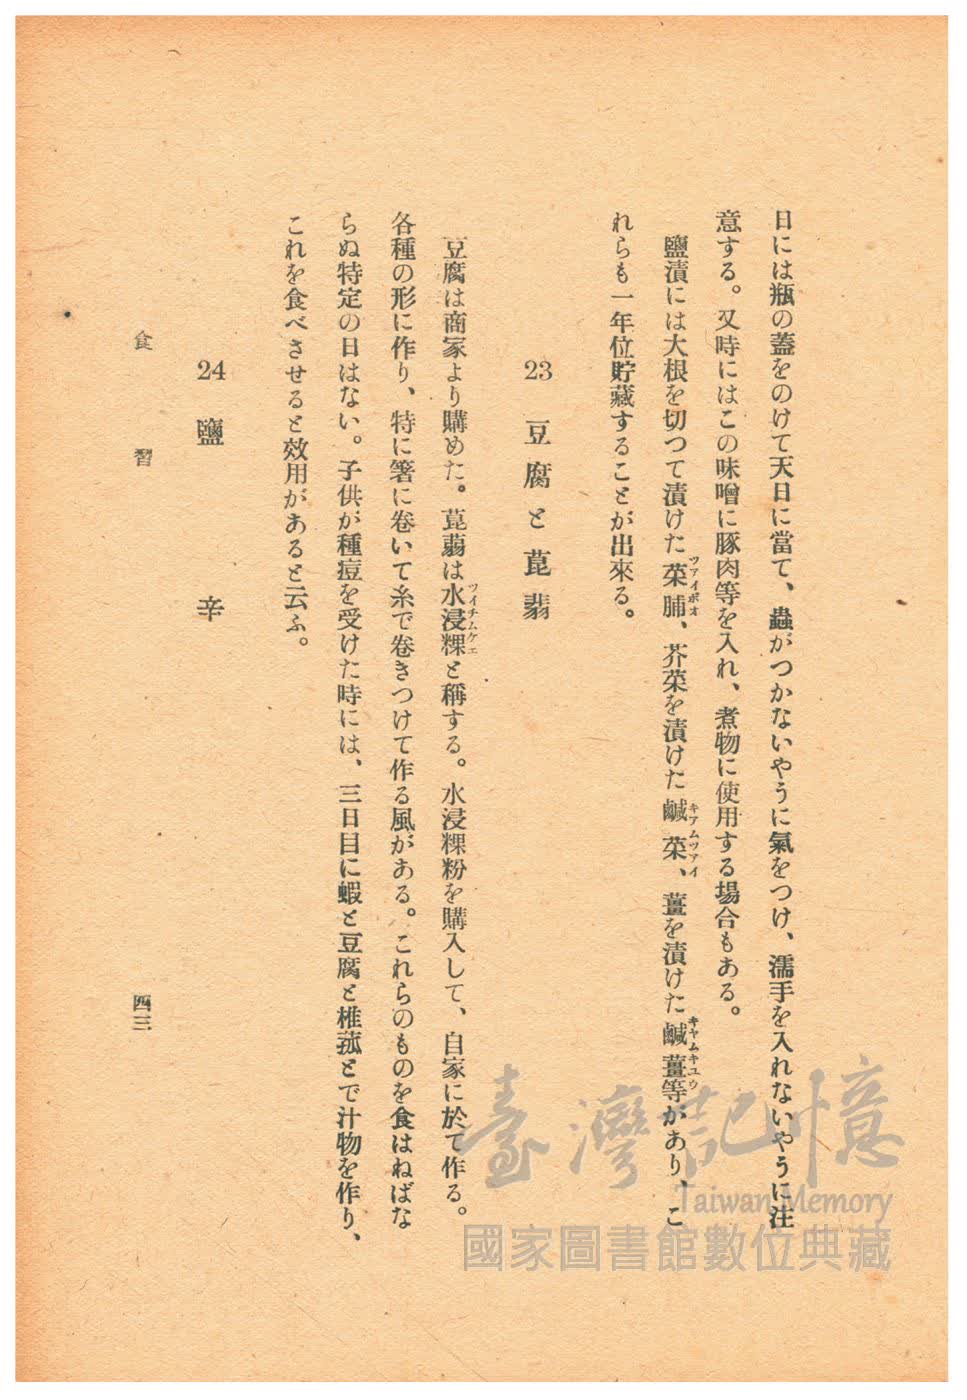 日には瓶の蓋をのけて天日に當て、蟲がつかないやうに氣をつけ、濡手を入れないやうに注
意する。又時にはこの味噌に豚肉等を入れ、煮物に使用する場合もある。
鹽漬には大根を切つて漬けた菜脯、芥菜を漬けた鹹菜、薑を漬けた鹹薑等があり、こ
ツアイポオ
キアムツアイ
キヤムキユウ
れらも一年位貯藏することが出來る。
23 豆腐と蒟蒻
豆腐は商家より購めた。蒟蒻は水浸粿と稱する。水浸粿粉を購入して、自家に於て作る。
ツイチムケエ
各種の形に作り、特に箸に卷いて糸で卷きつけて作る風がある。これらのものを食はねばな
らぬ特定の日はない。子供が種痘を受けた時には、三日目に蝦と豆腐と椎菰とで汁物を作り、
これを食べさせると效用があると云ふ。
24 鹽辛
食習
四三
臺灣記憶
Taiwan Memory
國家圖書館數位典藏